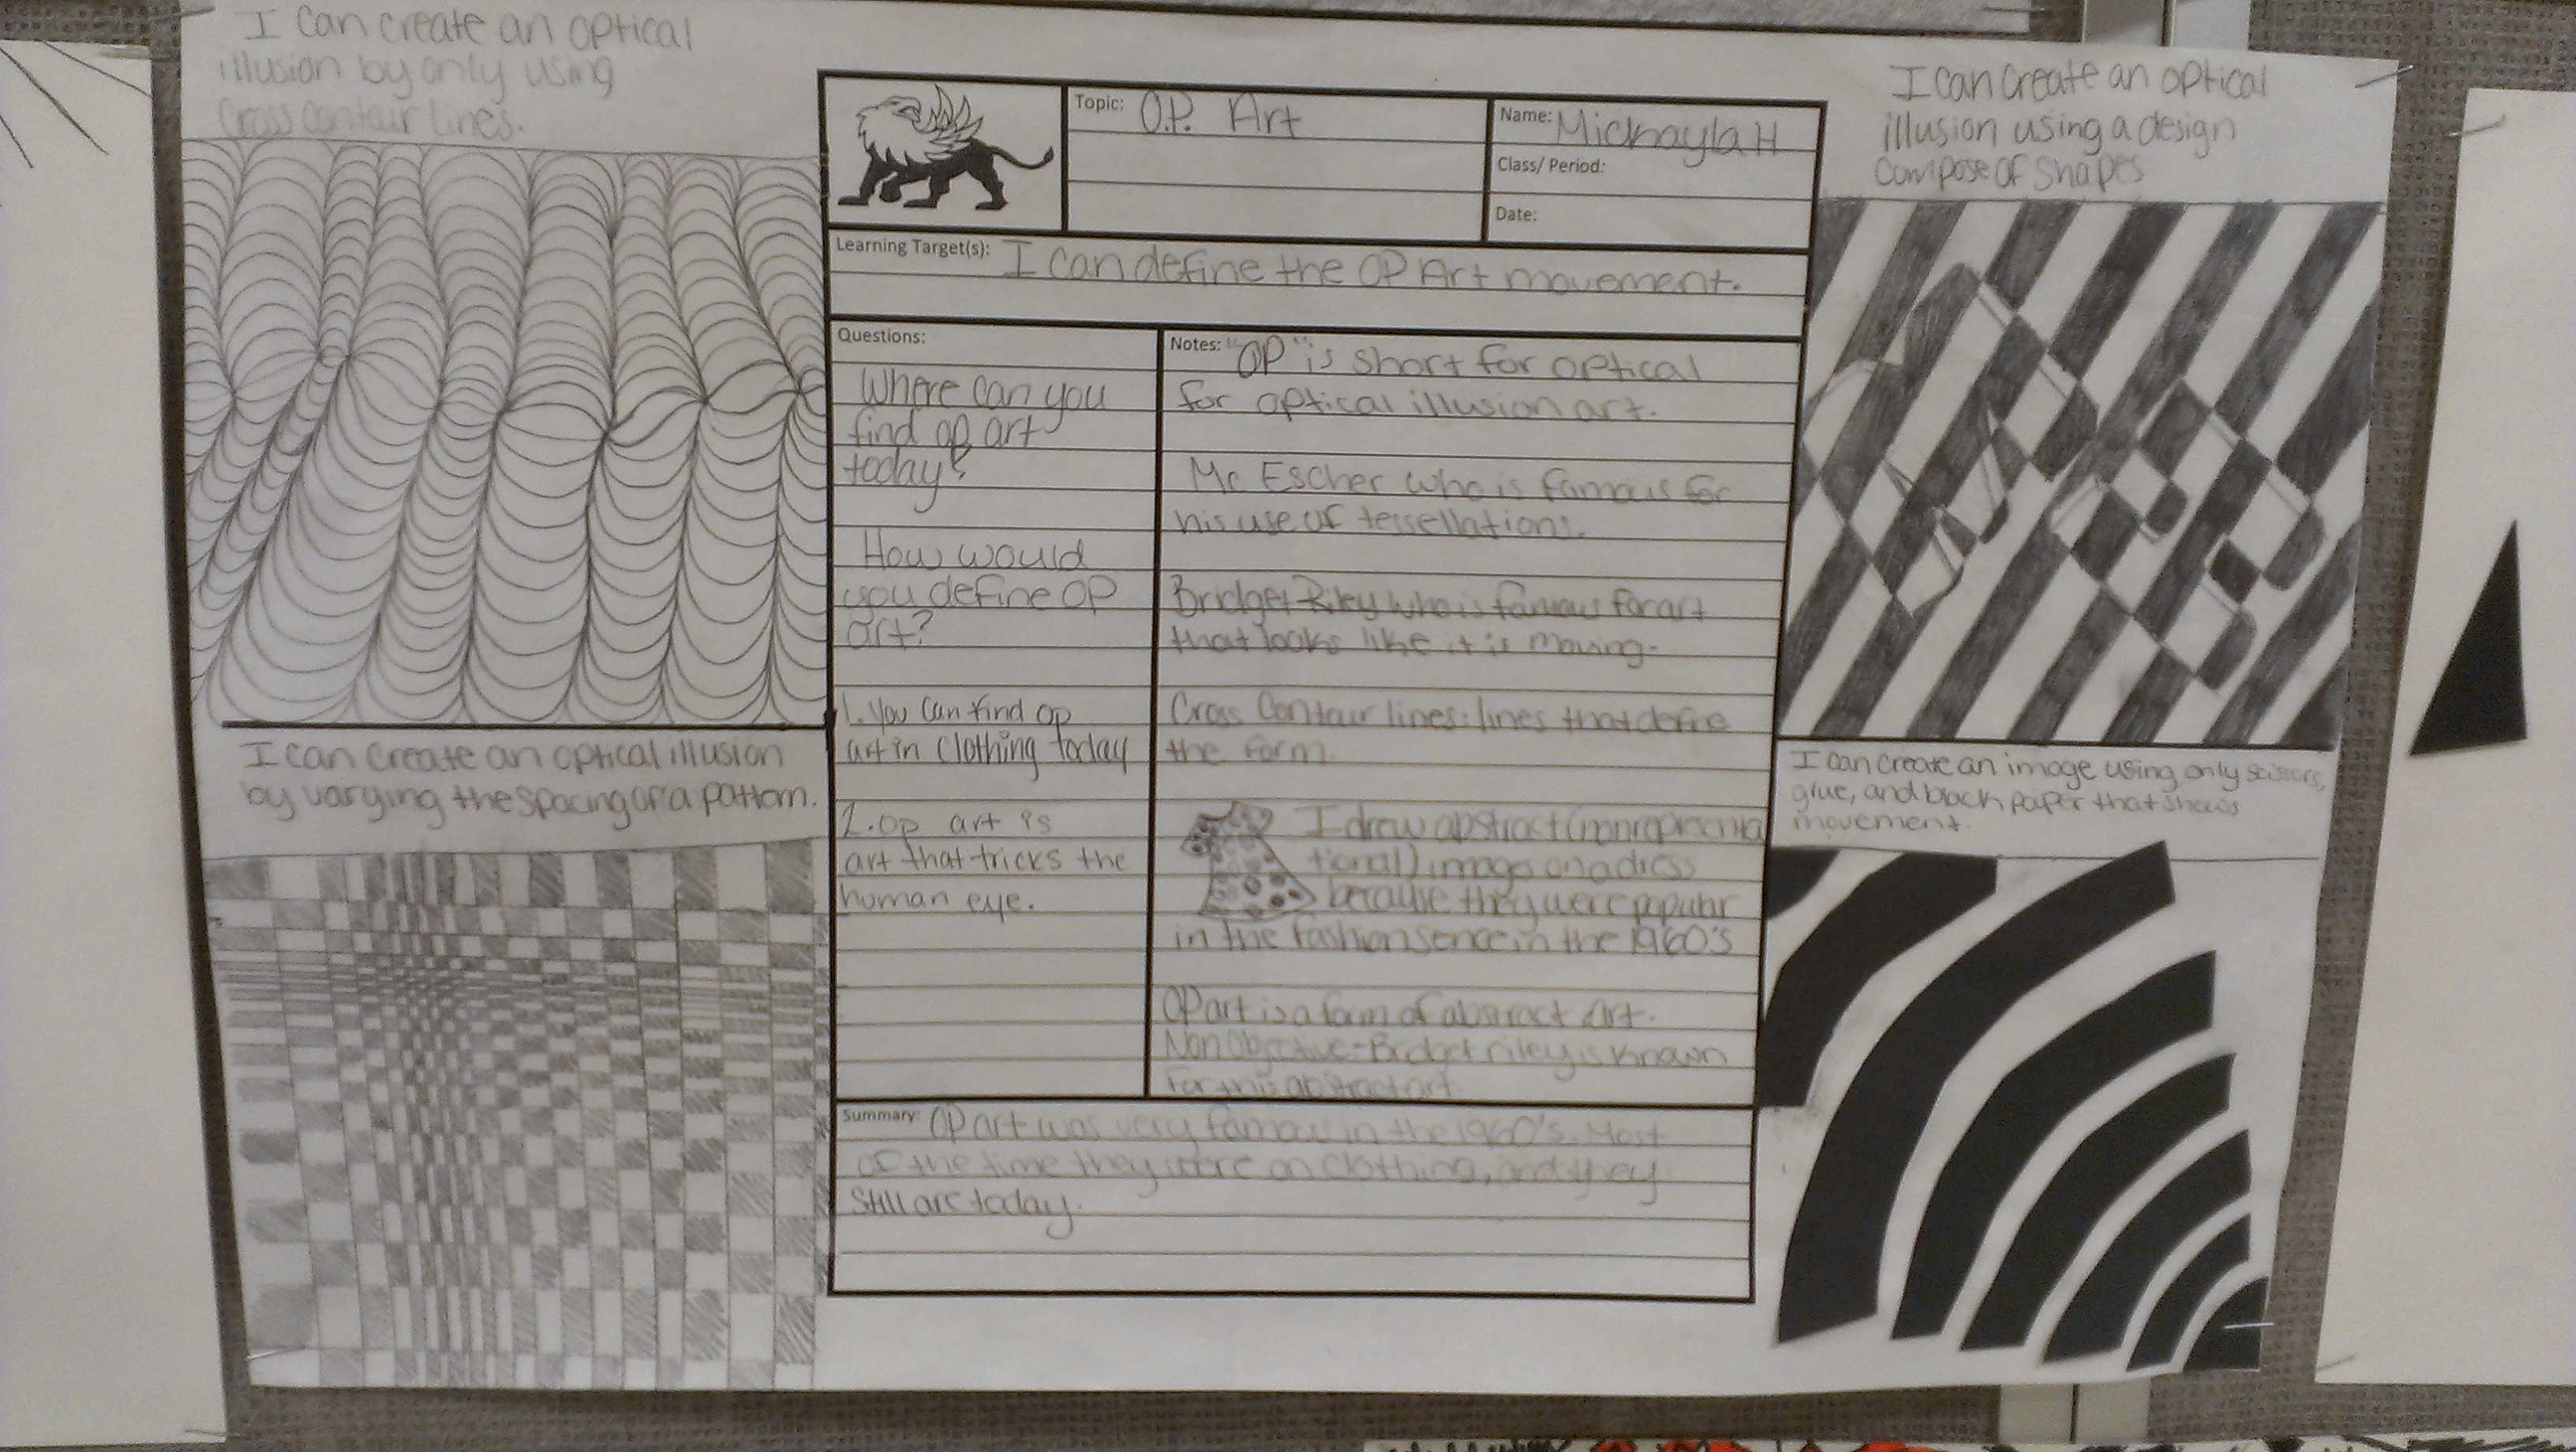 I can create an optical
illusion by only using
Cross Contour Lines.
I can create an optical illusion
by varying the spacing of a pattern.
Topic: O.P. Art
Name: Michayla H
Class/ Period:
Date:
Learning Target(s): I can define the OP Art movement.
Questions:
Where can you
find op art
today?
How would
you define OP
art?
1. You can find op
art in clothing today
2. op art is
art that tricks the
human eye.
Notes: "OP" is short for optical
for optical illusion art.
Mc Escher who is famous for
his use of tessellations.
Bridget Riley who is famous for art
that looks like it is moving.
Cross Contour lines: lines that define
the form.
I drew abstract (nonrepresenta
tional) image on a dress
because they were popular
in the fashion sence in the 1960's
OP art is a form of abstract Art.
Non Objective - Bridget riley is known
for this abstract art.
Summary: OP art was very famous in the 1960's. Most
of the time they were on clothing, and they
still are today.
I can create an optical
illusion using a design
compose of shapes
I can create an image using only scissors,
glue, and black paper that shows
movement.